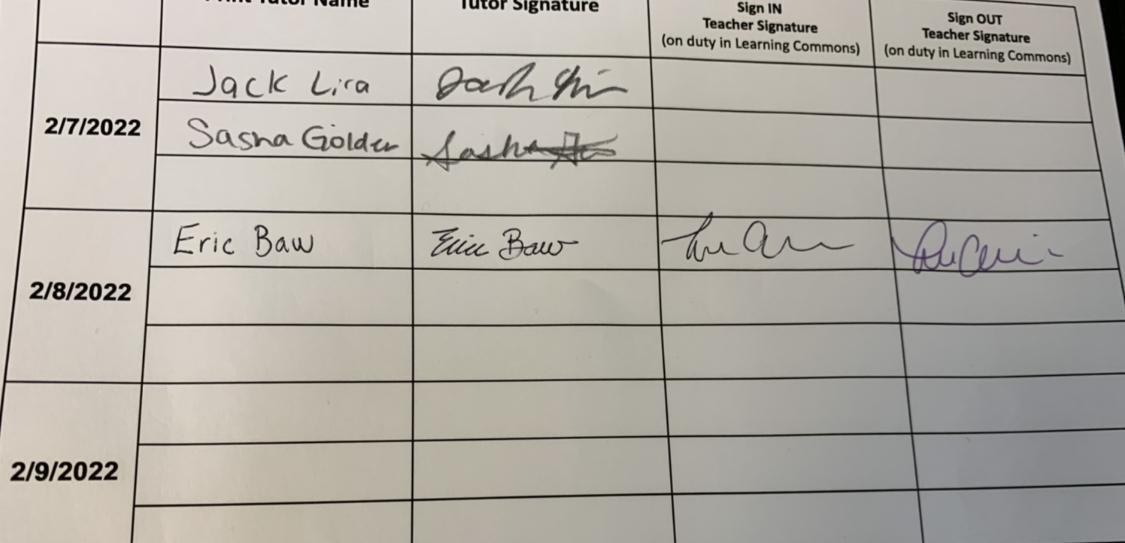 Tutor Name
Tutor Signature
Sign IN
Teacher Signature
(on duty in Learning Commons)
Sign OUT
Teacher Signature
(on duty in Learning Commons)
2/7/2022
Jack Lira
Sasha Golder
Sasha
2/8/2022
Eric Baw
Eric Baw
2/9/2022